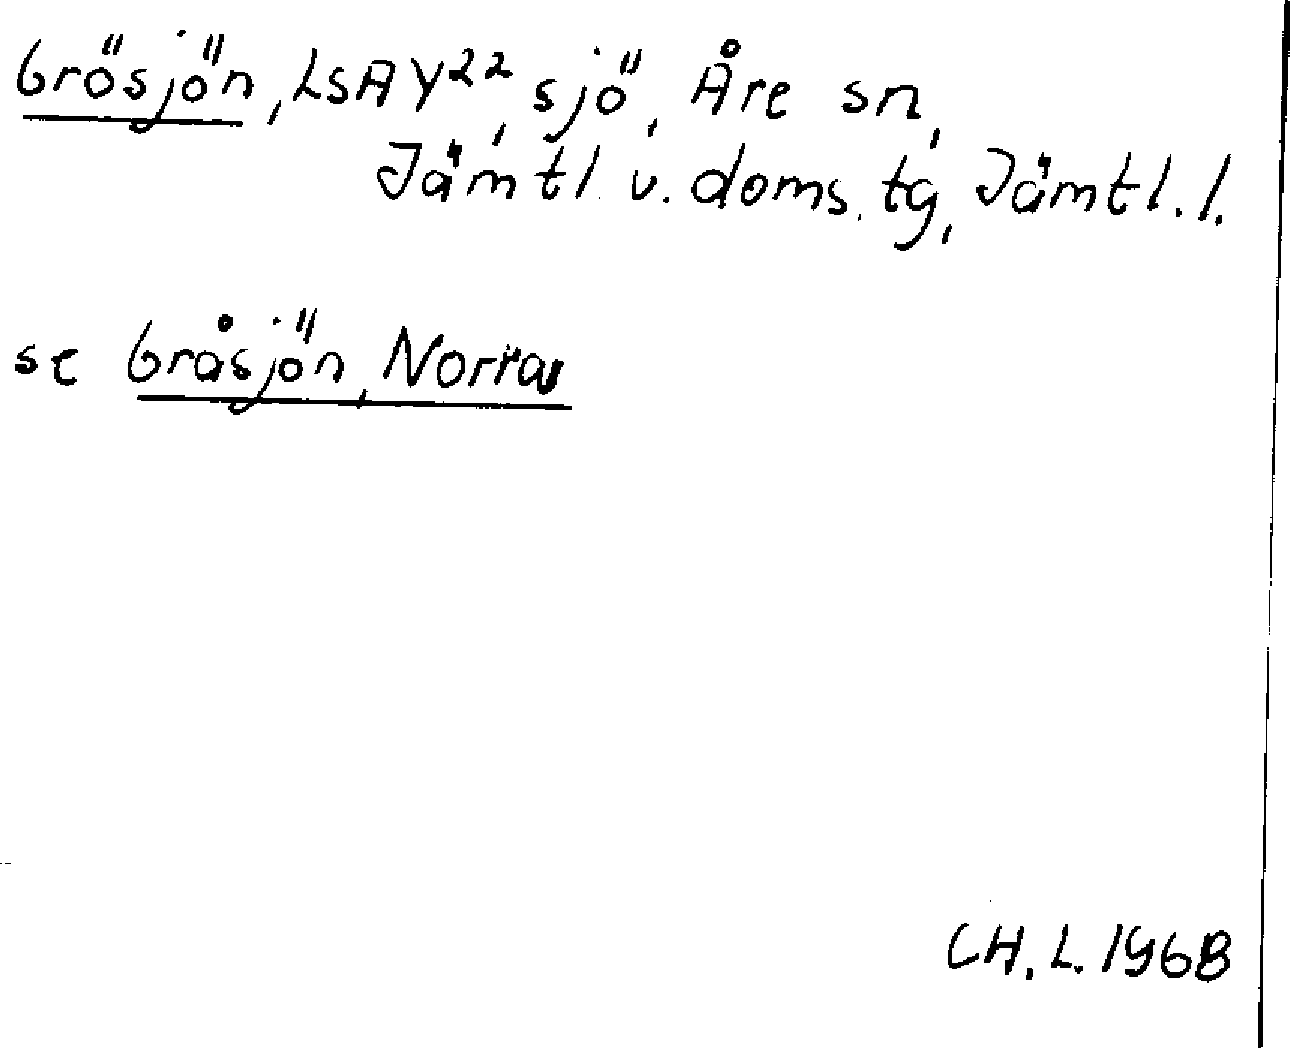 Grösjön, LSA Y22, sjö, Åre sn,
Jämtl. v. doms. tg, Jämtl. l.
se Gråsjön, Norra
CH. L. 1968